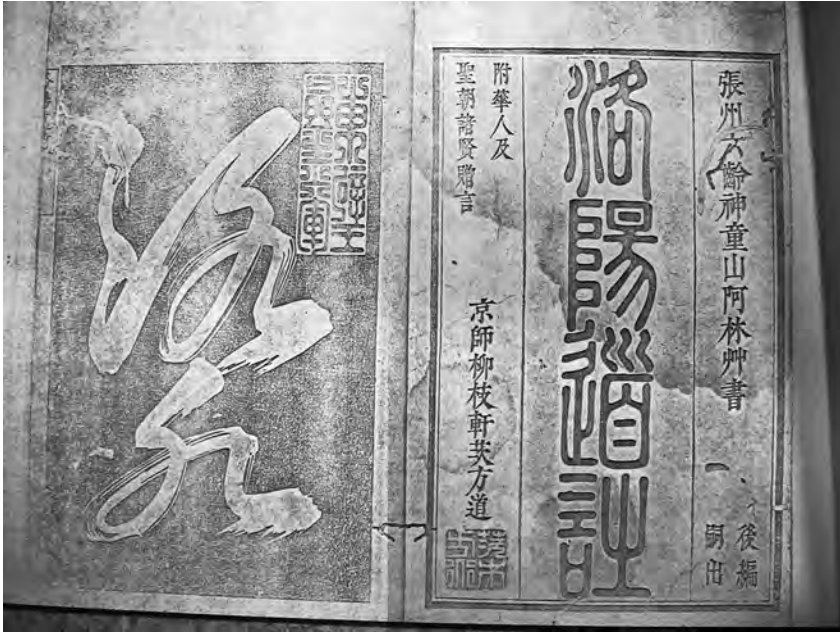 張州六齡神童山阿林艸書
後編
嗣出
洛陽道詩
附華人及
聖朝諸賢贈言
京師柳枝軒茨方道
洛